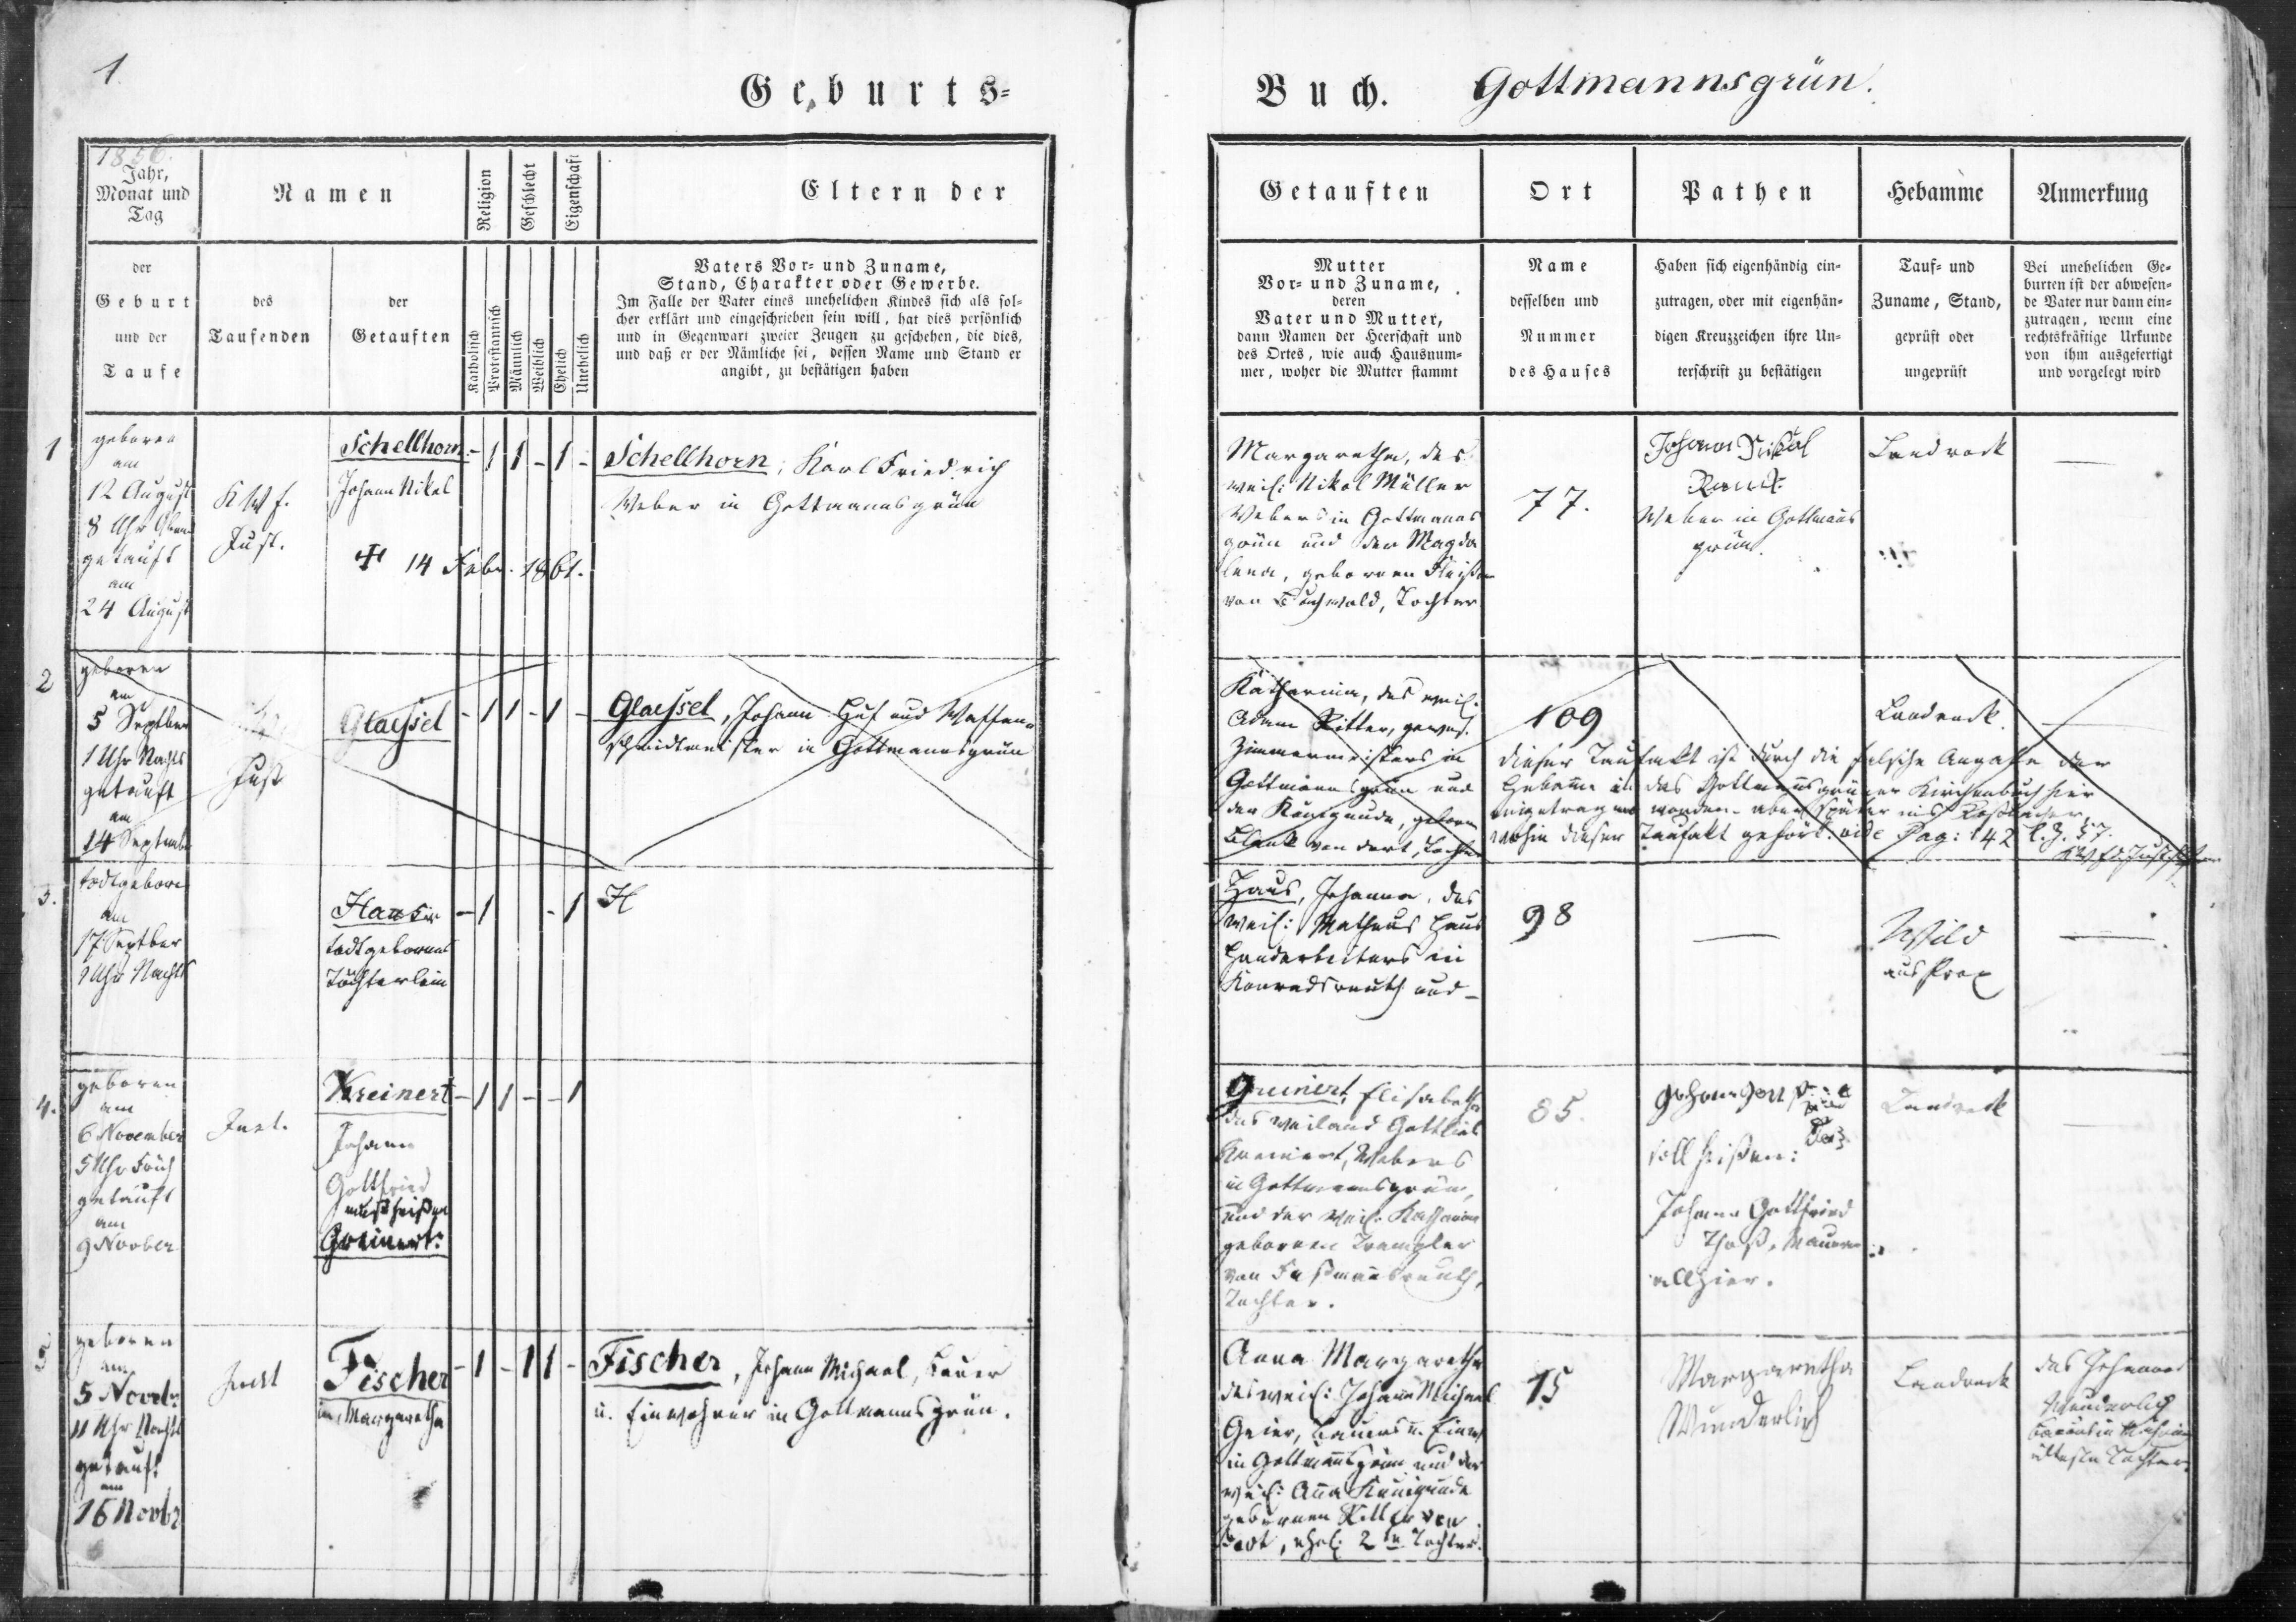 1.
Geburts-
Buch. Gottmannsgrün.
1856.
Jahr,
Monat und
Tag
Namen
Religion
Geschlecht
Eigenschaft
Eltern der
Getauften
Ort
Pathen
Hebamme
Anmerkung
der
Geburt
und der
Taufe
des
Taufenden
der
Getauften
Katholisch
Protestantisch
Männlich
Weiblich
Ehelich
Unehelich
Vaters Vor- und Zuname,
Stand, Charakter oder Gewerbe.
Im Falle der Vater eines unehelichen Kindes sich als sol-
cher erklärt und eingeschrieben sein will, hat dies persönlich
und in Gegenwart zweier Zeugen zu geschehen, die dies,
und daß er der Nämliche sei, dessen Name und Stand er
angibt, zu bestätigen haben
Mutter
Vor- und Zuname,
deren
Vater und Mutter,
dann Namen der Heerschaft und
des Ortes, wie auch Hausnum-
mer, woher die Mutter stammt
Name
desselben und
Nummer
des Hauses
Haben sich eigenhändig ein-
zutragen, oder mit eigenhän-
digen Kreuzzeichen ihre Un-
terschrift zu bestätigen
Tauf- und
Zuname, Stand,
geprüft oder
ungeprüft
Bei unehelichen Ge-
burten ist der abwesen-
de Vater nur dann ein-
zutragen, wenn eine
rechtskräftige Urkunde
von ihm ausgefertigt
und vorgelegt wird
1
geboren
am
12 August
8 Uhr
getauft
am
24 August
Just.
Schellhorn
Johann Nikol
14 Febr. 1861.
- 1 1 - 1 -
Schellhorn, Karl Friedrich
Weber in Gottmannsgrün
Margaretha, des
weil: Nikol Müller
Webers in Gottmanns
grün und der Magda
lena, gebornen
von Buchwald, Tochter
77.
Johann Nikol
Weber in Gottmanns
grün.
Landrock
—
2
geboren
am
5 Septber
1 Uhr Nachts
getauft
am
14 Septemb
Just
Glaessel
- 1 1 - 1 -
Glaessel, Johann Huf und Waffen-
schmidtmeister in Gottmannsgrün
Katharina, des weil.
Adam Ritter, gewes.
Zimmermeisters in
Gottmannsgrün und
der Kunigunde, geborn
von dort, Tochter
109
Landrock.
Dieser Taufakt ist durch die falsche Angabe der
Hebame in das Gottmannsgrüner Kirchenbuch hier
eingetragen worden, aber später ins
wohin dieser Taufakt gehört. vide Pag: 142
3.
todtgeboren
am
17 Septber
1 Uhr Nachts
todtgebornes
Töchterlein
- 1 - 1
H
Haus, Johanna, des
weil: Matheus Haus
Handarbeiters in
Konradsreuth und -
98
—
Wild
aus Prex
—
4.
geboren
am
6 November
5 Uhr Früh
getauft
am
9 Novber
Just.
Kreinert
Johann
Gottfried
muß heißen
Greinert.
- 1 1 - - 1
Greinert, Elisabetha
des weiland Gottlieb
Greinert, Webers
in Gottmannsgrün,
und der weil. Katharina
gebornen
von
Tochter.
85.
soll heißen:
Johann Gottfried
Thoß, Maurer
allhier.
Landrock
—
5
geboren
am
5 Novbr.
11 Uhr Nachts
getauft
am
16 Novbr
Just
Fischer
Margaretha
- 1 - 1 1 -
Fischer, Johann Michael, Bauer
u. Einwohner in Gottmannsgrün.
Anna Margaretha
des weil: Johann Michael
Geier, Bauers u. Einw
in Gottmannsgrün und der
weil: Anna Kunigunda
gebornen Ritter von
dort, ehel: 2te Tochter.
15
Margaretha
Wunderlich
Landrock
des Johann
Wunderlich
Bauers in
älteste Tochter.